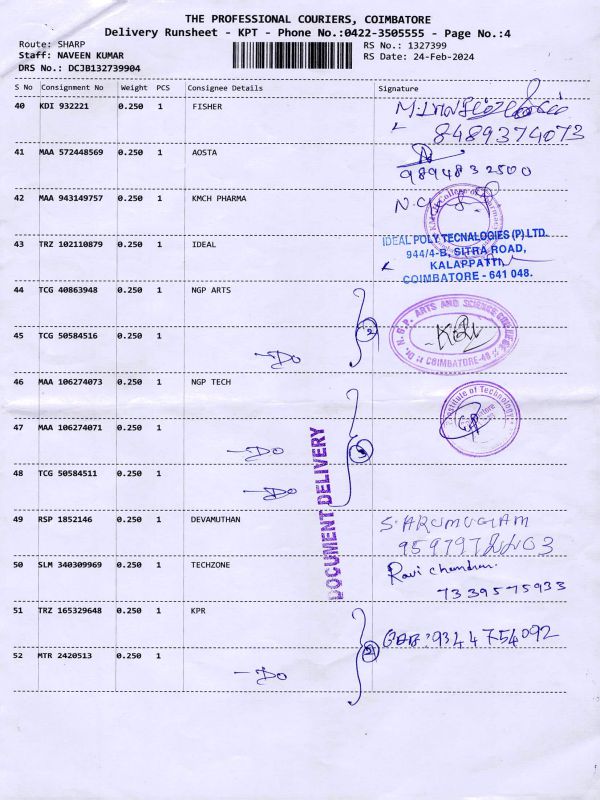 THE PROFESSIONAL COURIERS, COIMBATORE
Delivery Runsheet - KPT - Phone No.:0422-3505555 - Page No.:4
Route: SHARP
Staff: NAVEEN KUMAR
DRS No.: DCJB132739904
RS No.: 1327399
RS Date: 24-Feb-2024
S No Consignment No Weight PCS Consignee Details Signature
40 KDI 932221 0.250 1 FISHER
8489374073
41 MAA 572448569 0.250 1 AOSTA
9894832500
42 MAA 943149757 0.250 1 KMCH PHARMA
43 TRZ 102110879 0.250 1 IDEAL
IDEAL POLY TECNALOGIES (P) LTD.
944/4-B, SITRA ROAD,
KALAPPATTI,
COIMBATORE - 641 048.
44 TCG 40863948 0.250 1 NGP ARTS
2
N.G.P. ARTS AND SCIENCE COLLEGE
COIMBATORE-48
45 TCG 50584516 0.250 1 -Do
46 MAA 106274073 0.250 1 NGP TECH
Institute of Technology
47 MAA 106274071 0.250 1 -Do
48 TCG 50584511 0.250 1 -Do
DOCUMENT DELIVERY
49 RSP 1852146 0.250 1 DEVAMUTHAN
S. ARUMUGAM
50 SLM 340309969 0.250 1 TECHZONE
Ravi chandran.
7339575933
51 TRZ 165329648 0.250 1 KPR
9344754092
2
52 MTR 2420513 0.250 1 -Do